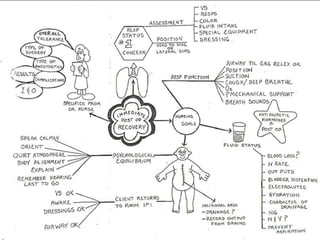 OVERALL
TOLERANCE
TYPE OF
SURGERY
TYPE OF
ANESTHETICS
RESULTS
COMPLICATIONS
I & O
SPECIFICS FROM
OR NURSE
RESP
STATUS
#1
CONCERN
ASSESSMENT
VS
RESPS
COLOR
FLUID INTAKE
SPECIAL EQUIPMENT
DRESSING
POSITION
HEAD TO SIDE OR
LATERAL SIMS
RESP FUNCTION
AIRWAY TIL GAG REFLEX OR
POSITION
SUCTION
COUGH/ DEEP BREATHE
O₂
MECHANICAL SUPPORT
BREATH SOUNDS
IMMEDIATE
POST OP
RECOVERY
NURSING
GOALS
ANTI DIURETIC
HORMONES
POST OP
FLUID STATUS
BLOOD LOSS?
IV RATE
OUT PUTS
BLADDER DISTENTION
ELECTROLYTES
HYDRATION
CHARACTER OF
DRAINAGE
NG
N & V ?
PREVENT
ASPIRATION
SPEAK CALMLY
ORIENT
QUIET ATMOSPHERE
BODY ALIGNMENT
EXPLAIN
REMEMBER HEARING
LAST TO GO
PSYCHOLOGICAL
EQUILIBRIUM
VS OK
AWAKE
DRESSINGS OK
AIRWAY OK
CLIENT RETURNS
TO ROOM IF:
INCISIONAL AREA
- DRAINAGE ?
- RECORD OUTPUT
FROM DRAINS